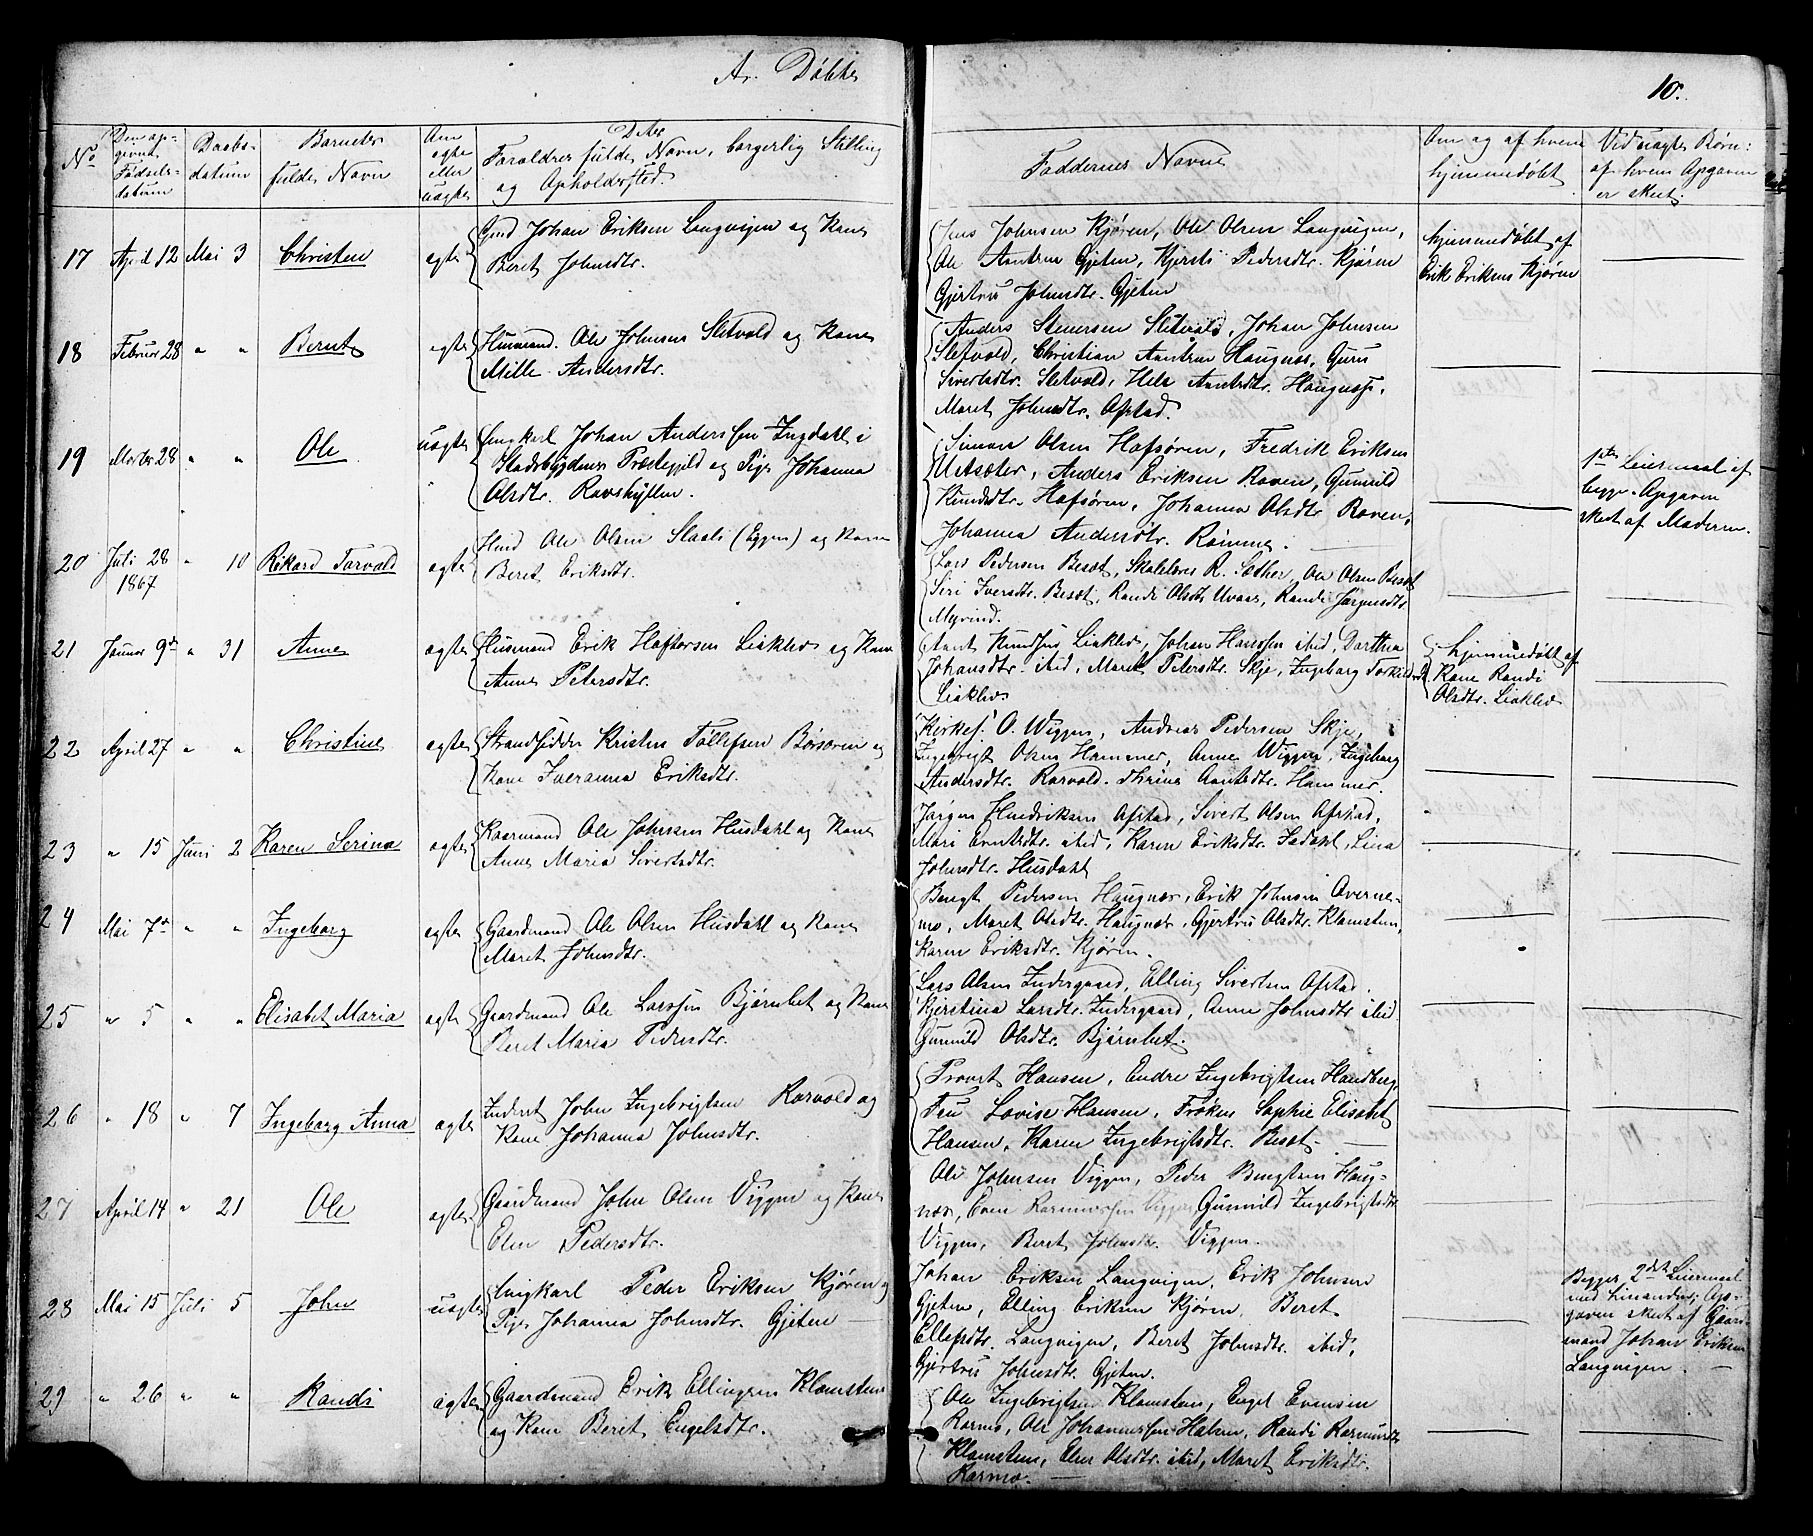 A. Døbte
10.
No
Den op-
givne
Fødsels-
datum
Daabs-
datum
Barnets
fulde Navn
Om
ægte
eller
uægte
Dets
Forældres fulde Navn, borgerlig Stilling
og Opholdssted.
Faddernes Navne
Om og af hvem
hjemmedøbt
Ved uægte Børn:
af hvem Opgaven
er skeet.
17 April 12 Mai 3 Christen ægte
Gmd Johan Eriksen Langvigen og Kone
Beret Johnsdtr.
Jens Johnsen Kjøren, Ole Olsen Langvigen,
Ole Arntsen Gjeten, Kjersti Pedersdtr. Kjøren
Gjertru Johnsdtr. Gjeten
hjemmedøbt af
Erik Eriksen Kjøren
18 Februar 28 " " Bernt ægte
Husmand. Ole Johnsen Sletvold og Kone
Mille Andersdtr.
Anders Steensen Sletvold, Johan Johnsen
Sletvold, Christian Arntsen Haugnæs, Guru
Sivertsdtr. Sletvold, Arntsdtr. Haugnæss,
Maret Johnsdtr. Ofstad.
19 Marts 28 " " Ole uægte
Ungkarl Johan Anderssen Ingdahl i
Stadsbygdens Præstegjeld og Pige Johanna
Olsdtr. Ravshyllen.
Simon Olsen Hafsøren, Fredrik Eriksen
Anders Eriksen Raven, Gunnild
Knudsdtr. Hafsøren, Johanna Olsdtr Raven,
Johanna Andersdtr. Rømme.
1ste Leiermaal af
begge. Opgaven
skeet af Moderen.
20 Juli 28 " 10 Rikard Torvald ægte
1867
Ole Olsen (Eggen) og Kone
Beret Eriksdtr.
Lars Pedersen Besæt, Skolelærer R. Sæther, Ole Olsen Besæt
Siri Iversdtr. Besæt, Randi Olsdtr Uvaas, Randi Jørgensdtr
21 Januar 9de " 31 Anne ægte
Husmand Erik Haftorsen Liaklev og Kone
Anne Petersdtr.
Arnt Knudsen Liaklev, Johan Hanssen ibid, Dorthea
Johansdtr. ibid, Maret Petersdtr. Skje, Ingeborg
Liaklev
hjemmedøbt af
Kone Randi
Olsdtr. Liaklev
22 April 27 " " Christine ægte
Strandsidder Kristen Tøllefsen Børsøren og
Kone Iveranna Eriksdtr.
Kirkes. O. Wiggen, Andreas Pedersen Skje,
Ingebrigt Olsen Hammer, Anne Wiggen, Ingeborg
Andersdtr. Rørvold. Thrine Arntsdtr. Hammer.
23 " 15 Juni 2 Karen Serina ægte
Gaardmand Ole Johnsen Husdahl og Kone
Anne Maria Sivertsdtr.
Jørgen Hendriksen Ofstad, Sivert Olsen Ofstad,
Mari Erntsdtr. ibid, Karen Eriksdtr. Lina
Johnsdtr. Husdahl
24 Mai 7de " " Ingeborg ægte
Gaardmand Ole Olsen Husdahl og Kone
Maret Johnsdtr.
Bengt Pedersen Haugnæs, Erik Johnsen Overne-
mo, Maret Olsdtr. Haugnæs, Gjertru Olsdtr. Klomsten,
Karen Eriksdtr. Kjøren.
25 " 5 " " Elisabet Maria ægte
Gaardmand Ole Larssen Bjørnbet og Kone
Beret Maria Pedersdtr.
Lars Olsen Indergaard, Elling Sivertsen Ofstad.
Kjerstina Larsdtr. Indergaard, Anne Johnsdtr ibid.
Gunnild Olsdtr. Bjørnbet.
26 " 18 " 7 Ingeborg Anna ægte
Inderst John Ingebrigtsen Rørvold og
Kone Johanna Johnsdtr.
Provst Hansen, Endre Ingebrigtsen Handberg,
Fru Lovise Hansen, Frøken Sophie Elisabet
Hansen, Karen Ingebrigtsdtr. Besæt.
27 April 14 " 21 Ole ægte
Gaardmand John Olsen Viggen og Kone
Elen Pedersdtr.
Ole Johnsen Viggen, Peder Bengtsen Haug-
næs, Even Rasmussen Viggen, Gunnild Ingebrigtsdtr.
Viggen, Beret Johnsdtr. Viggen.
28 Mai 15 Juli 5 John uægte
Ungkarl Peder Eriksen Kjøren og
Pige Johanna Johnsdtr. Gjeten
Johan Eriksen Langvigen, Erik Johnsen
Gjeten, Elling Eriksen Kjøren, Beret
Ellefsdtr. Langvigen, Beret Johnsdtr. ibid,
Gjertru Johnsdtr. Gjeten.
Begges 2det Leiermaal
med hinanden; Op-
gaven skeet af Gaard-
mand Johan Eriksen
Langvigen.
29 " 26 " " Randi ægte
Gaardmand Erik Ellingsen Klomsten
og Kone Beret Engelsdtr.
Ole Ingebrigtsen Klomsten, Engel Evensen
Rørmo, Ole Johannessen Halsen, Randi Rasmusdtr
Klomsten, Elen Olsdtr. ibid, Maret Eriksdtr.
Rørmo.